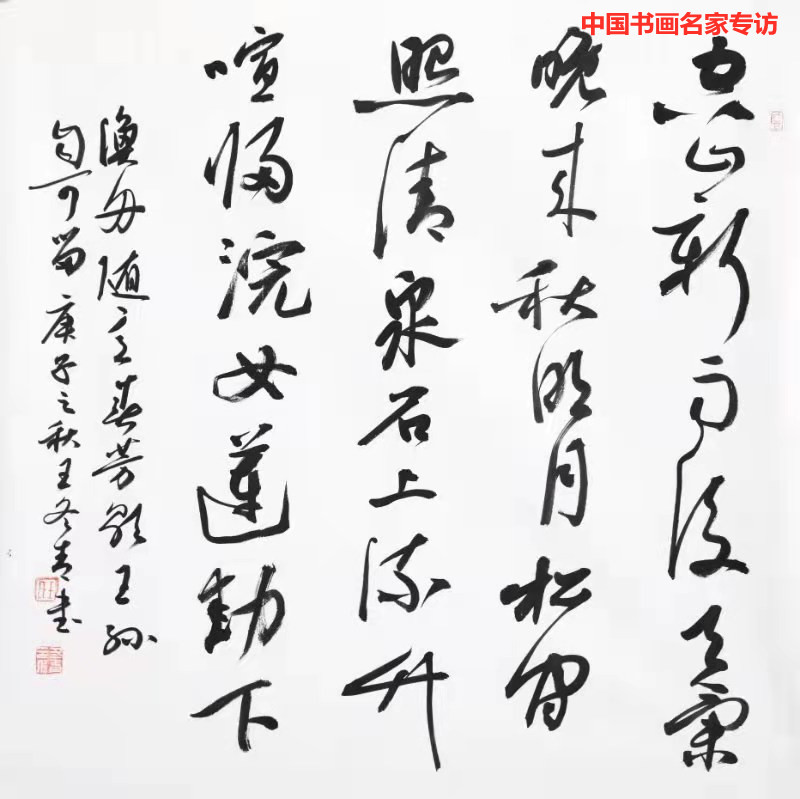 中国书画名家专访
空山新雨後天氣
晚来秋明月松間
照清泉石上流竹
喧歸浣女蓮動下
漁舟随意春芳歇王孫
自可留庚子之秋王冬青書